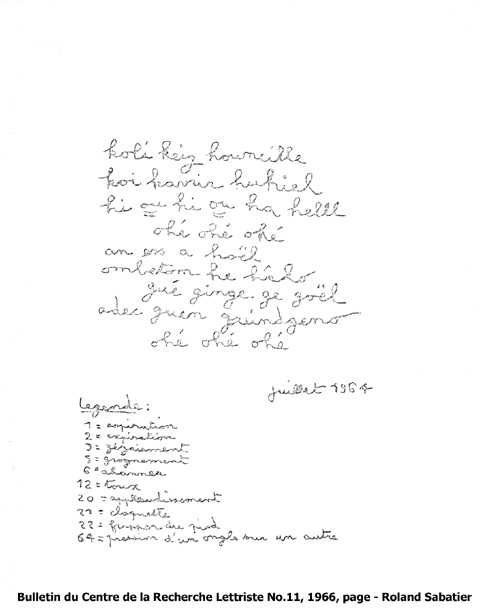 koli kéiz hourcille
koi kavir hukiel
hi ou hi ou ha helll
ohé ohé ohé
an es a hoël
ombetom he hédo
gué ginge ge goël
adec guen gründgeno
ohé ohé ohé
juillet 1964
Legende :
1 = aspiration
2 = expiration
3 = zézaiement
5 = grognement
6 = ahanner
12 = toux
20 = applaudissement
21 = claquette
22 = frapper du pied
64 = pression d'un ongle sur un autre
Bulletin du Centre de la Recherche Lettriste No.11, 1966, page - Roland Sabatier